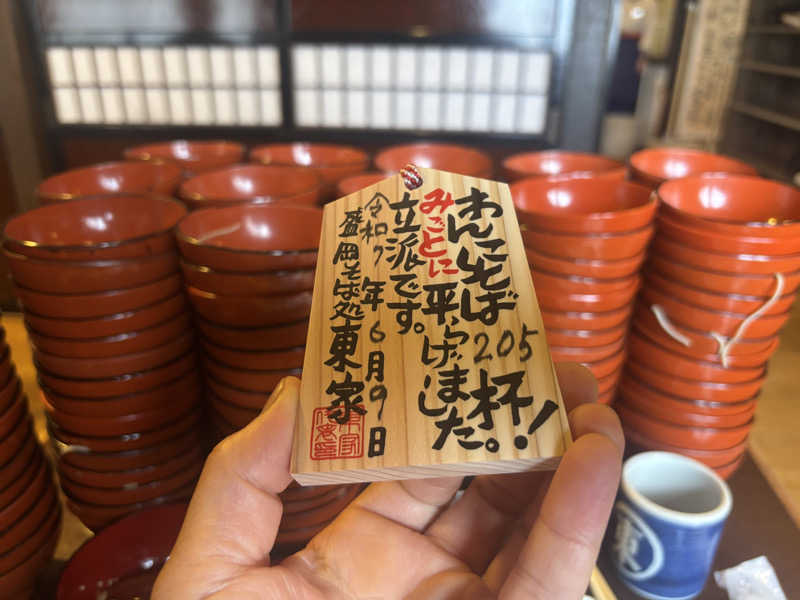 わんこそば205杯!
みごとに平らげました。
立派です。
令和7年6月9日
盛岡そば処東家
東